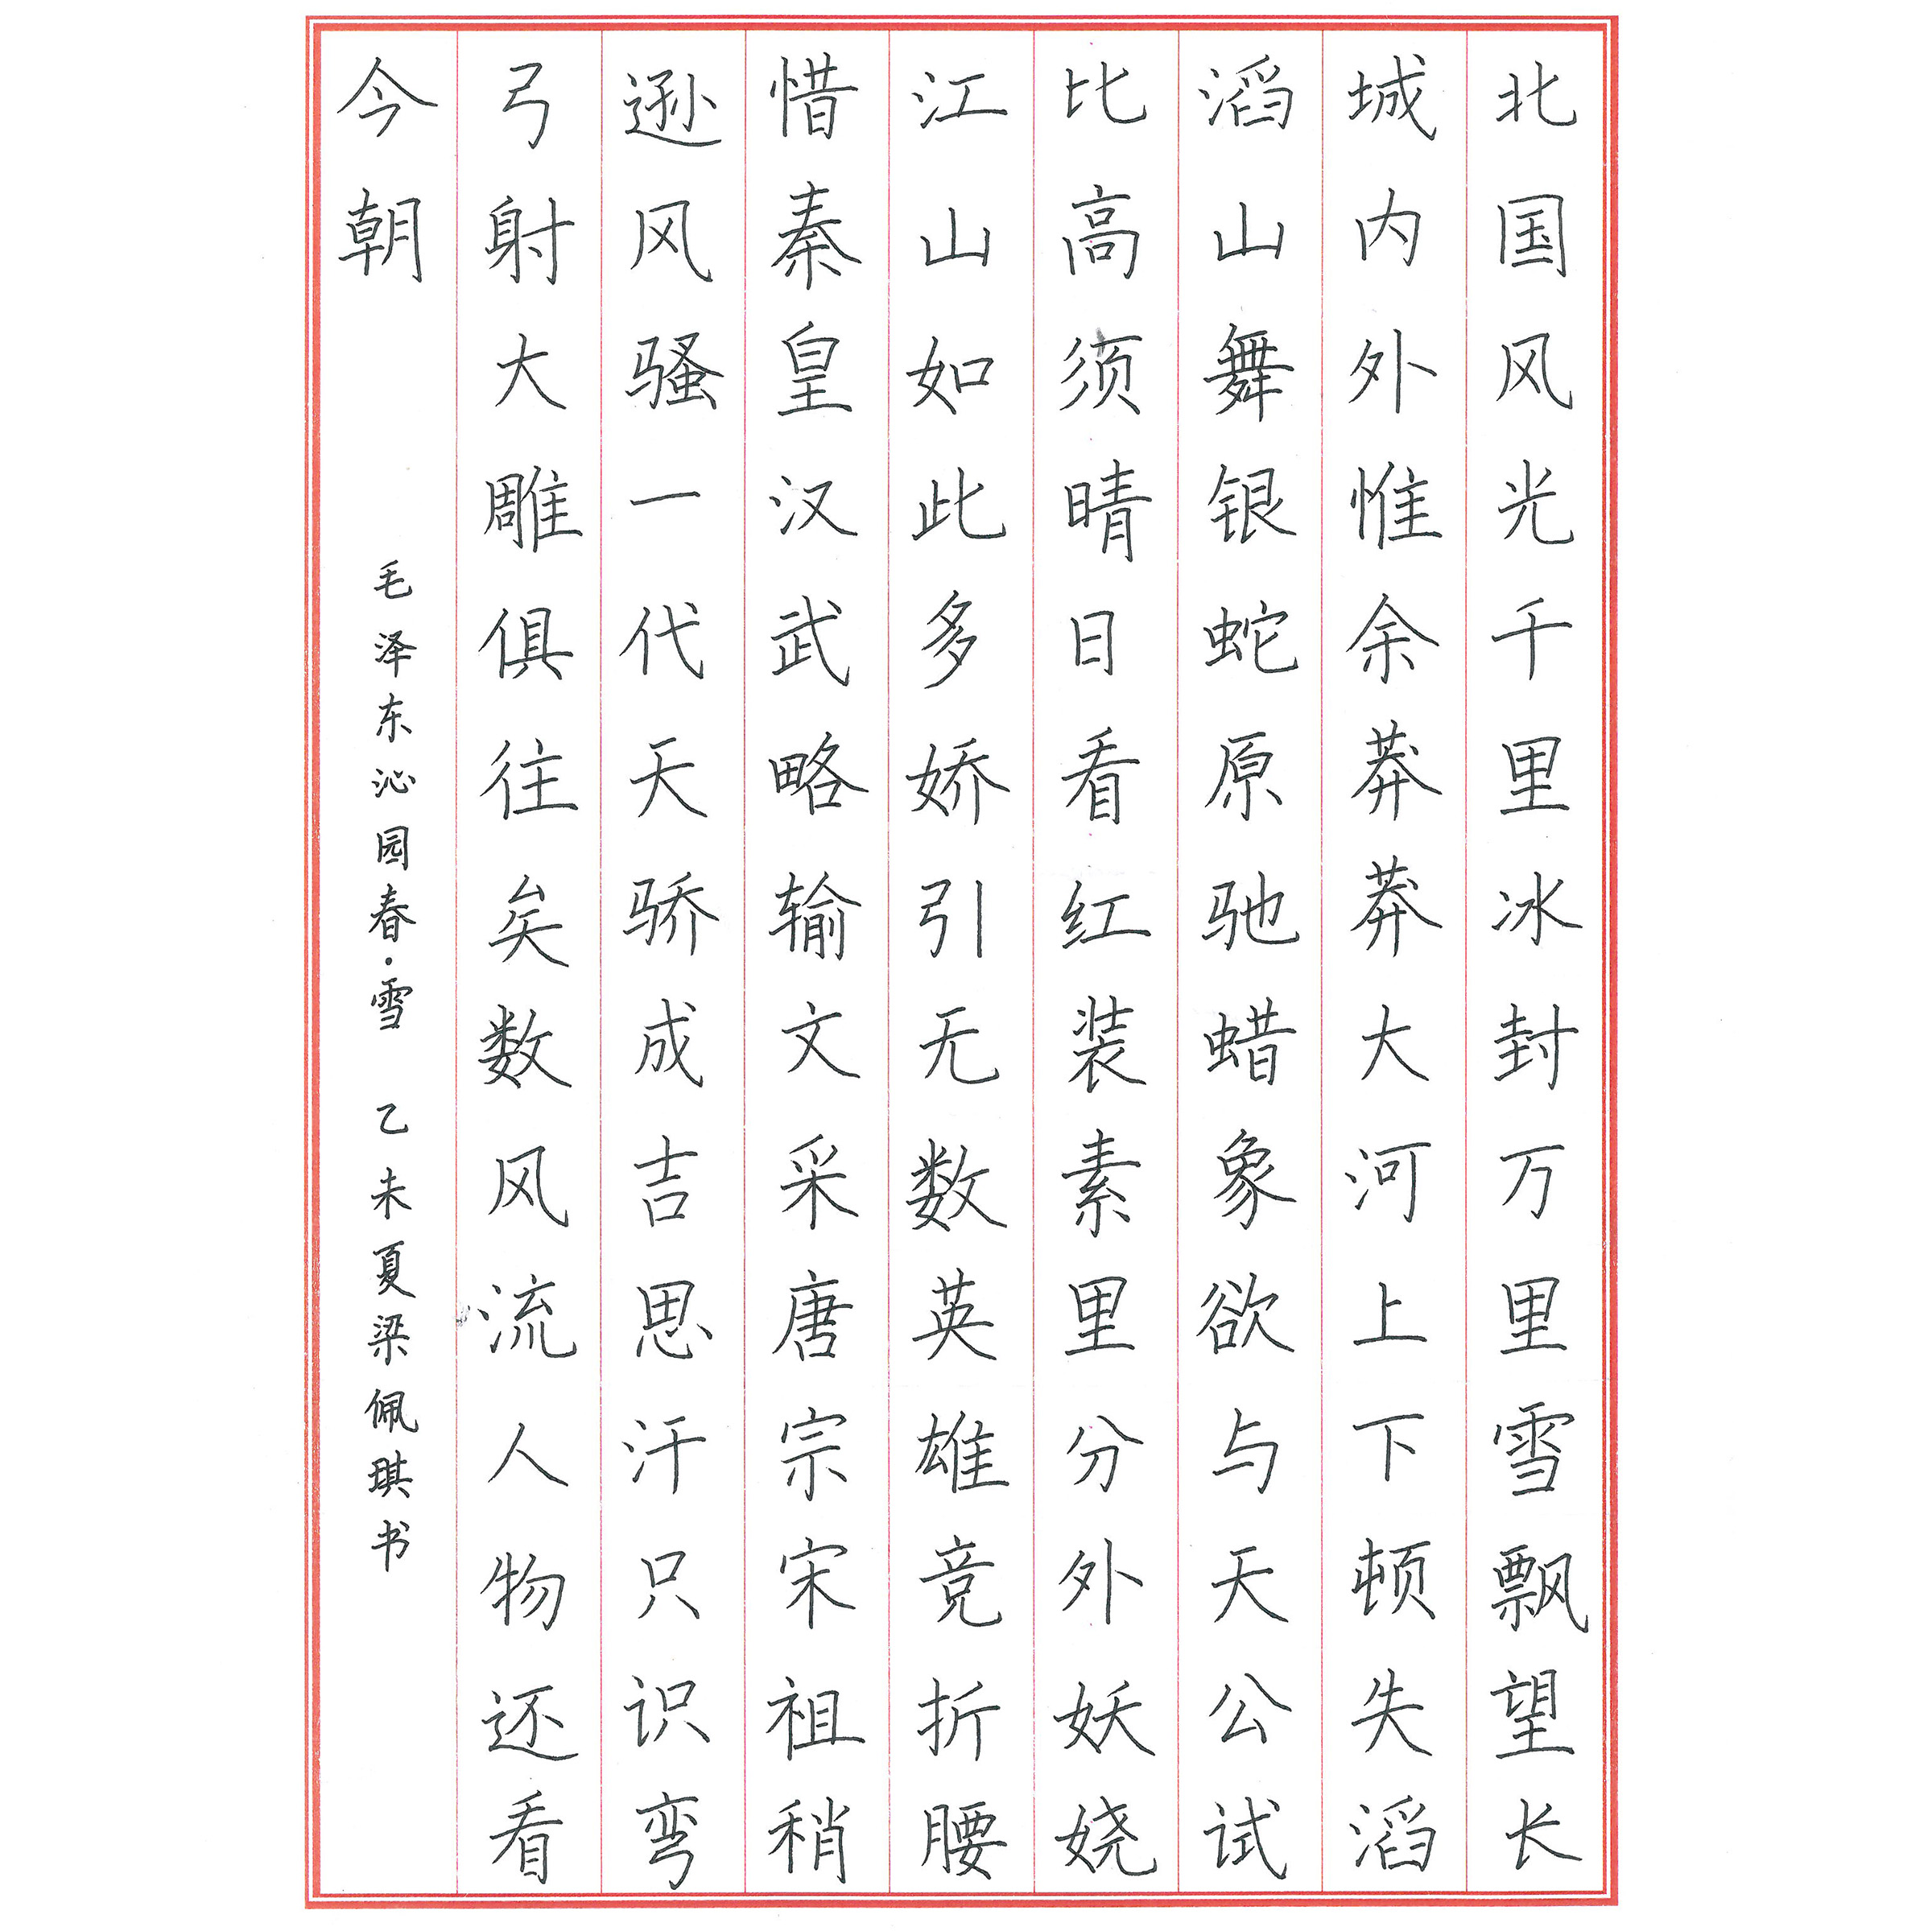 北国风光千里冰封万里雪飘望长
城内外惟余莽莽大河上下顿失滔
滔山舞银蛇原驰蜡象欲与天公试
比高须晴日看红装素里分外妖娆
江山如此多娇引无数英雄竞折腰
惜秦皇汉武略输文采唐宗宋祖稍
逊风骚一代天骄成吉思汗只识弯
弓射大雕俱往矣数风流人物还看
今朝
毛泽东沁园春·雪 乙未夏梁佩琪书